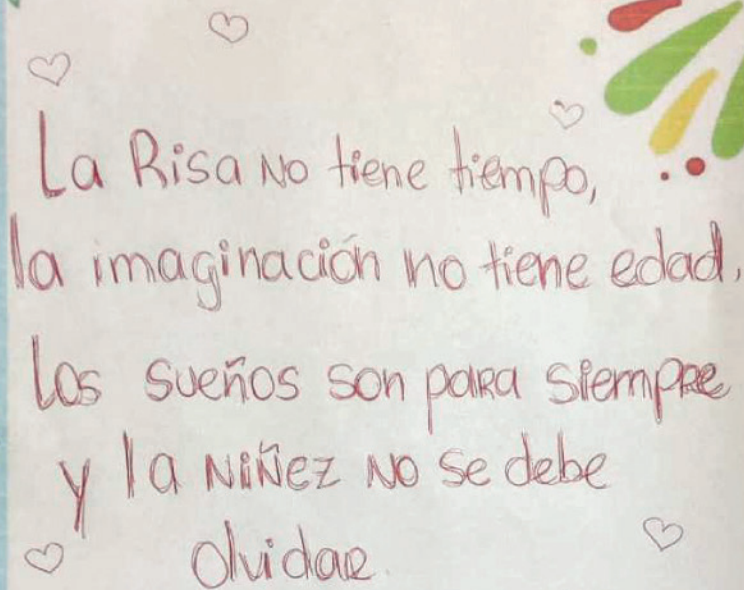 La Risa No tiene tiempo,
la imaginación no tiene edad,
Los sueños son paRa siempRe
y la NiÑez No se debe
OlvidaR